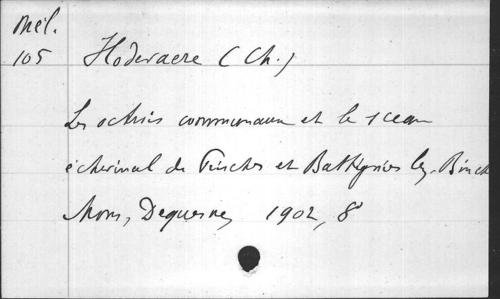 Mél.
105 Hodevaere (Ch.)
Les octrois communaux et le sceau
échevinal de Péissches et Battignies lez-Binch
Mons, Dequesne, 1902, 8°